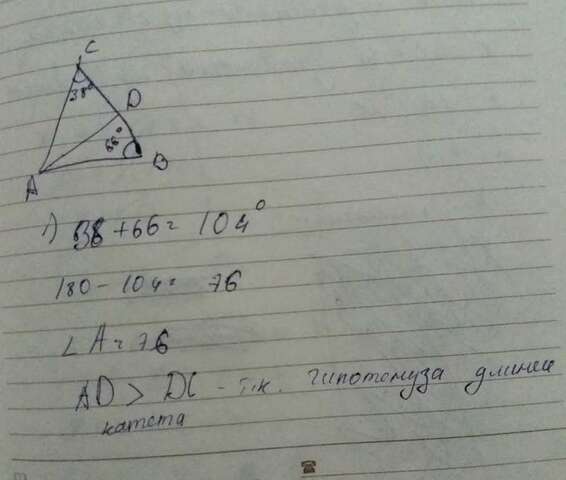 C
38°
D
66°
B
A
1) 38+66= 104°
180-104= 76
∠A=76
AD > DC - т.к. гипотенуза длинее
катета